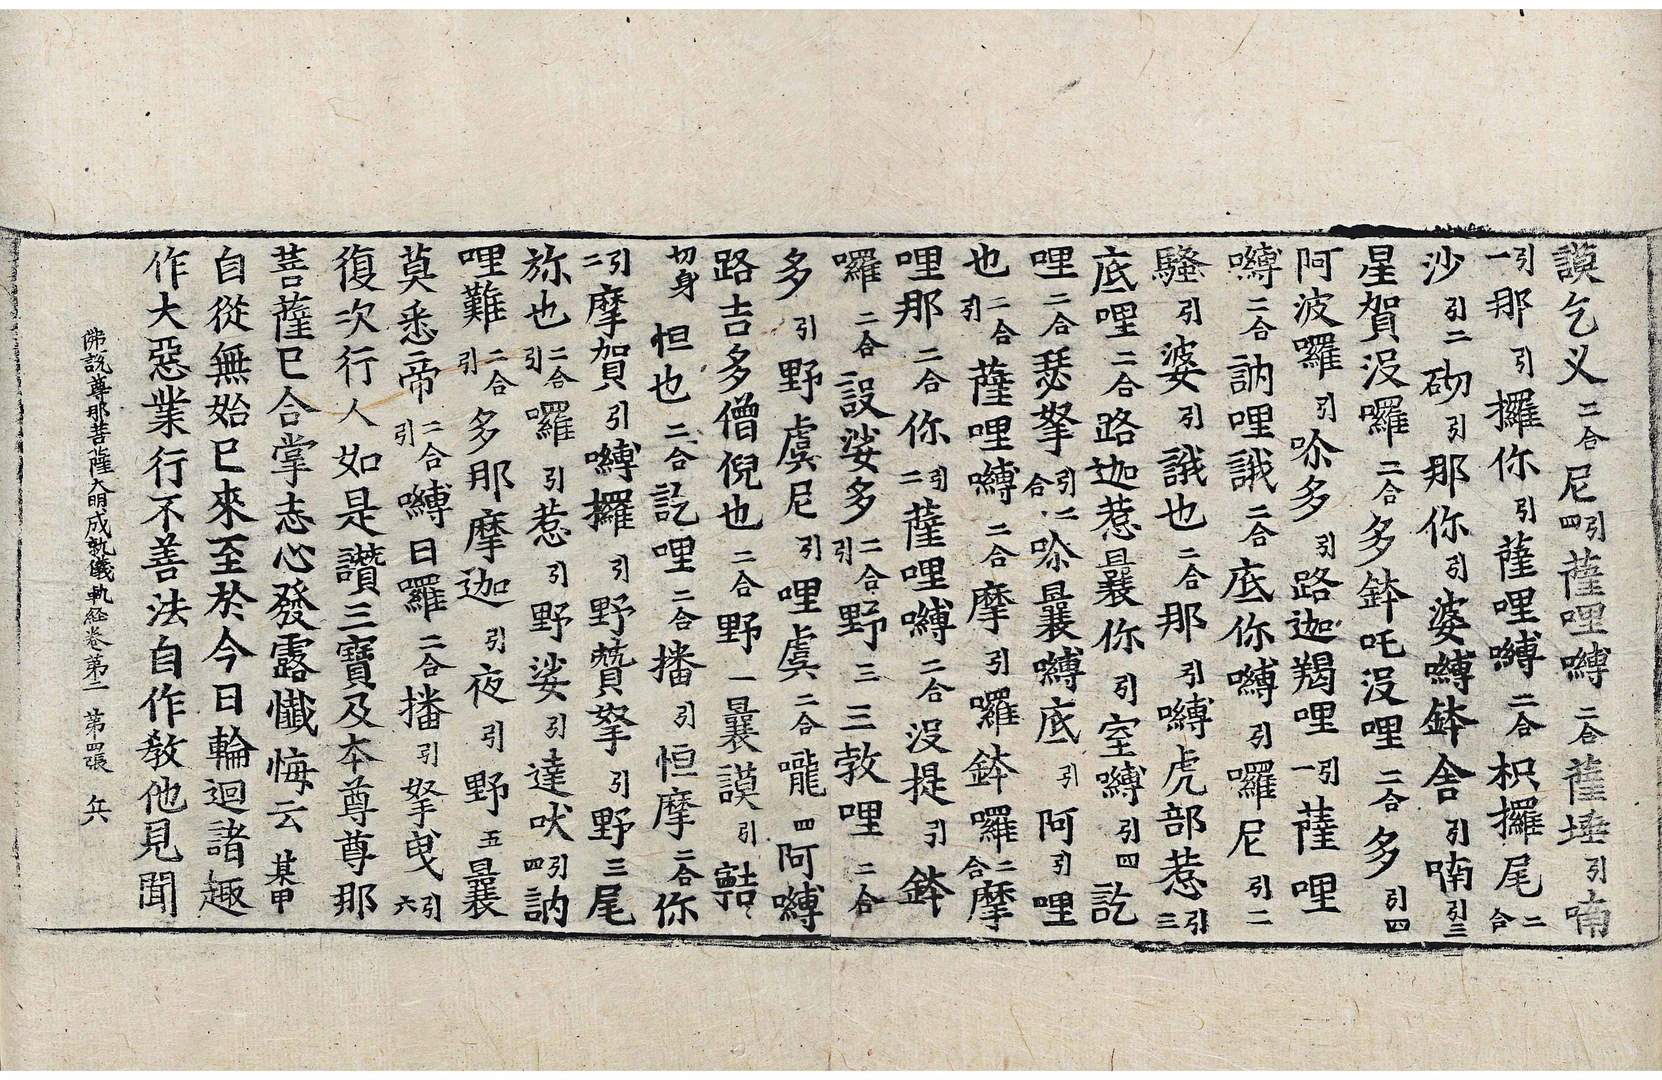 謨乞义二合尼引四薩哩嚩二合薩埵引喃
引一那引攞你引薩哩嚩二合枳攞尾二合
沙引二砌引那你引婆嚩鉢舍引喃引三
星賀沒囉二合多鉢吒沒哩二合多引四
阿波囉引哆多引路迦羯哩引一薩哩
嚩二合訥哩誐二合底你嚩引囉尼引二
騷引婆引誐也二合那引嚩虎部惹引三
底哩二合路迦惹曩你引室嚩引四訖
哩二合瑟拏引二合哆曩嚩底引阿引哩
也二合引薩哩嚩二合摩引囉鉢囉二合摩
哩那二合你引二薩哩嚩二合沒提引鉢
囉二合設娑多二合引野三三敦哩二合
多引野虞尼引哩虞二合嚨四阿嚩
路吉多僧倪也二合野一曩謨引㘉
切身怛也二合訖哩二合播引怛摩二合你
引二摩賀引嚩攞引野贊拏引野三尾
旀也二合引囉引惹引野娑引達吠引四訥
哩難二合引多那摩迦引夜引野五曩
莫悉帝二合引嚩日囉二合播引拏曳引六
復次行人如是讚三寶及本尊尊那
菩薩已合掌志心發露懺悔云某甲
自從無始已來至於今日輪迴諸趣
作大惡業行不善法自作教他見聞
佛說尊那菩薩大明成就儀軌經卷第二 第四張 兵